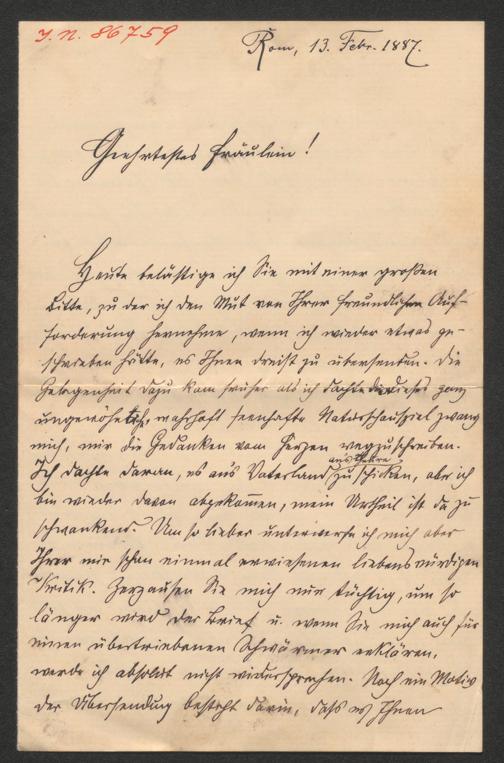 J. N. 86759
Rom, 13. Febr. 1887.
Geehrtestes Fräulein!
Heute belästige ich Sie mit einer großen
Bitte, zu der ich den Mut von Ihrer freundlichen Auf-
forderung hernehme, wenn ich wieder etwas ge-
schrieben hätte, es Ihnen dreist zu übersenden. Die
Gelegenheit dazu kam früher als ich dachte dieses ganz
ungewöhnliche, wahrhaft feenhafte Naturschauspiel zwang
mich, mir die Gedanken vom Herzen wegzuschreiben.
Ich dachte daran, es an's Vaterland zu schicken, aber ich
bin wieder davon abgekommen, mein Urtheil ist da zu
schwankend. Um so lieber unterwerfe ich mich aber
Ihrer mir schon einmal erwiesenen liebenswürdigen
Kritik. Zerzausen Sie mich nur tüchtig, um so
länger wird der Brief u. wenn Sie mich auch für
einen übertriebenen Schwärmer erklären,
werde ich absolut nicht widersprechen. Noch ein Motiv
der Übersendung besteht darin, daß es Ihnen